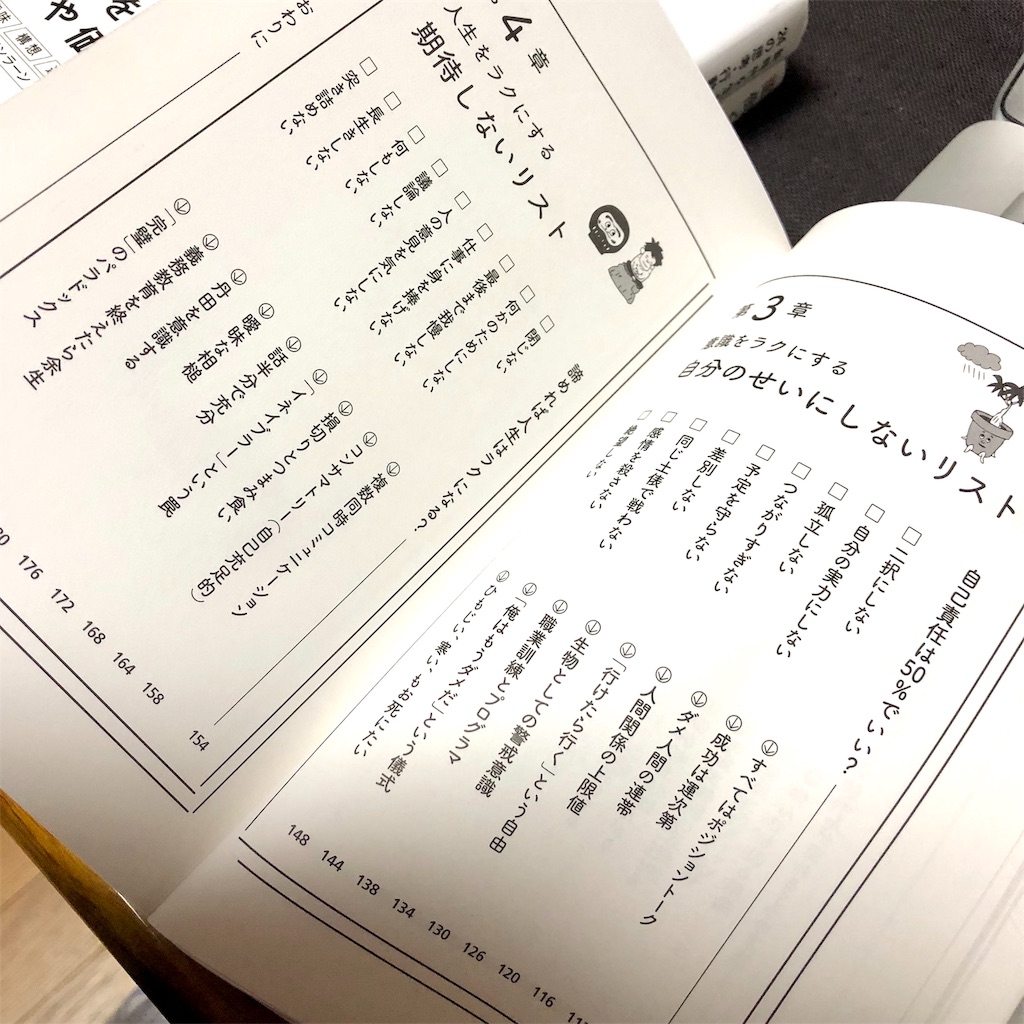 第3章
意識をラクにする
自分のせいにしないリスト
自己責任は50%でいい?
□ 二択にしない ↓ すべてはポジショントーク
□ 自分の実力にしない ↓ 成功は運次第 116
□ 孤立しない ↓ ダメ人間の連帯 120
□ つながりすぎない ↓ 人間関係の上限値 126
□ 予定を守らない ↓ 「行けたら行く」という自由 130
□ 差別しない ↓ 生物としての警戒意識 134
□ 同じ土俵で戦わない ↓ 職業訓練とプログラマ 138
□ 感情を殺さない ↓ 「俺はもうダメだ」という儀式 144
□ 絶望しない ↓ ひもじい、寒い、もお死にたい 148
4章
人生をラクにする
期待しないリスト
諦めれば人生はラクになる? 154
□ 閉じない ↓ 複数同時コミュニケーション 158
□ 何かのためにしない ↓ コンサマトリー(自己充足的) 164
□ 最後まで我慢しない ↓ 損切りとつまみ食い 168
□ 仕事に身を捧げない ↓ 「イネイブラー」という罠 172
□ 人の意見を気にしない ↓ 話半分で充分 176
□ 議論しない ↓ 曖昧な相槌
□ 何もしない ↓ 丹田を意識する
□ 長生きしない ↓ 義務教育を終えたら余生
□ 突き詰めない ↓ 「完璧」のパラドックス
おわりに
を
や価
構想